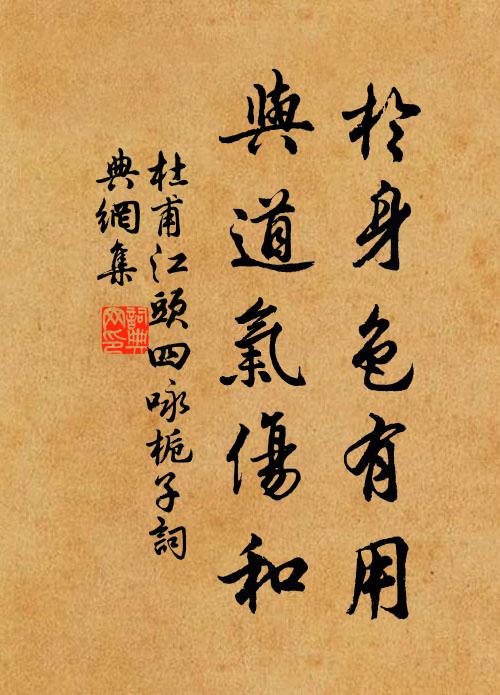 於身色有用
與道氣傷和
杜甫江頭四咏梔子詞
典網集
詞典